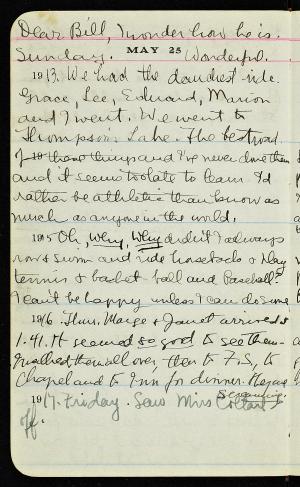 Dear Bill, I wonder how he is.
Sunday. MAY 25 Wonderful.
1913. We had the dandiest ride.
Grace, Lee, Edward, Marion
and I went. We went to
Thompson's Lake. The best road.
of those things and I've never done them
and it seems too late to learn I'd
rather be athletic than know as
much as anyone in the world.
1915 Oh, why, why didn't I always
row & swim and ride horseback & play
tennis & basket ball and baseball?
I can't be happy unless I can do some
1916 Thurs. Marge & Janet arrived @
1.41. It seemed so good to see them.
them all over, then to F.S., to
Chapel and to Inn for dinner.
Screaming.
1917. Friday. Saw Miss
off.